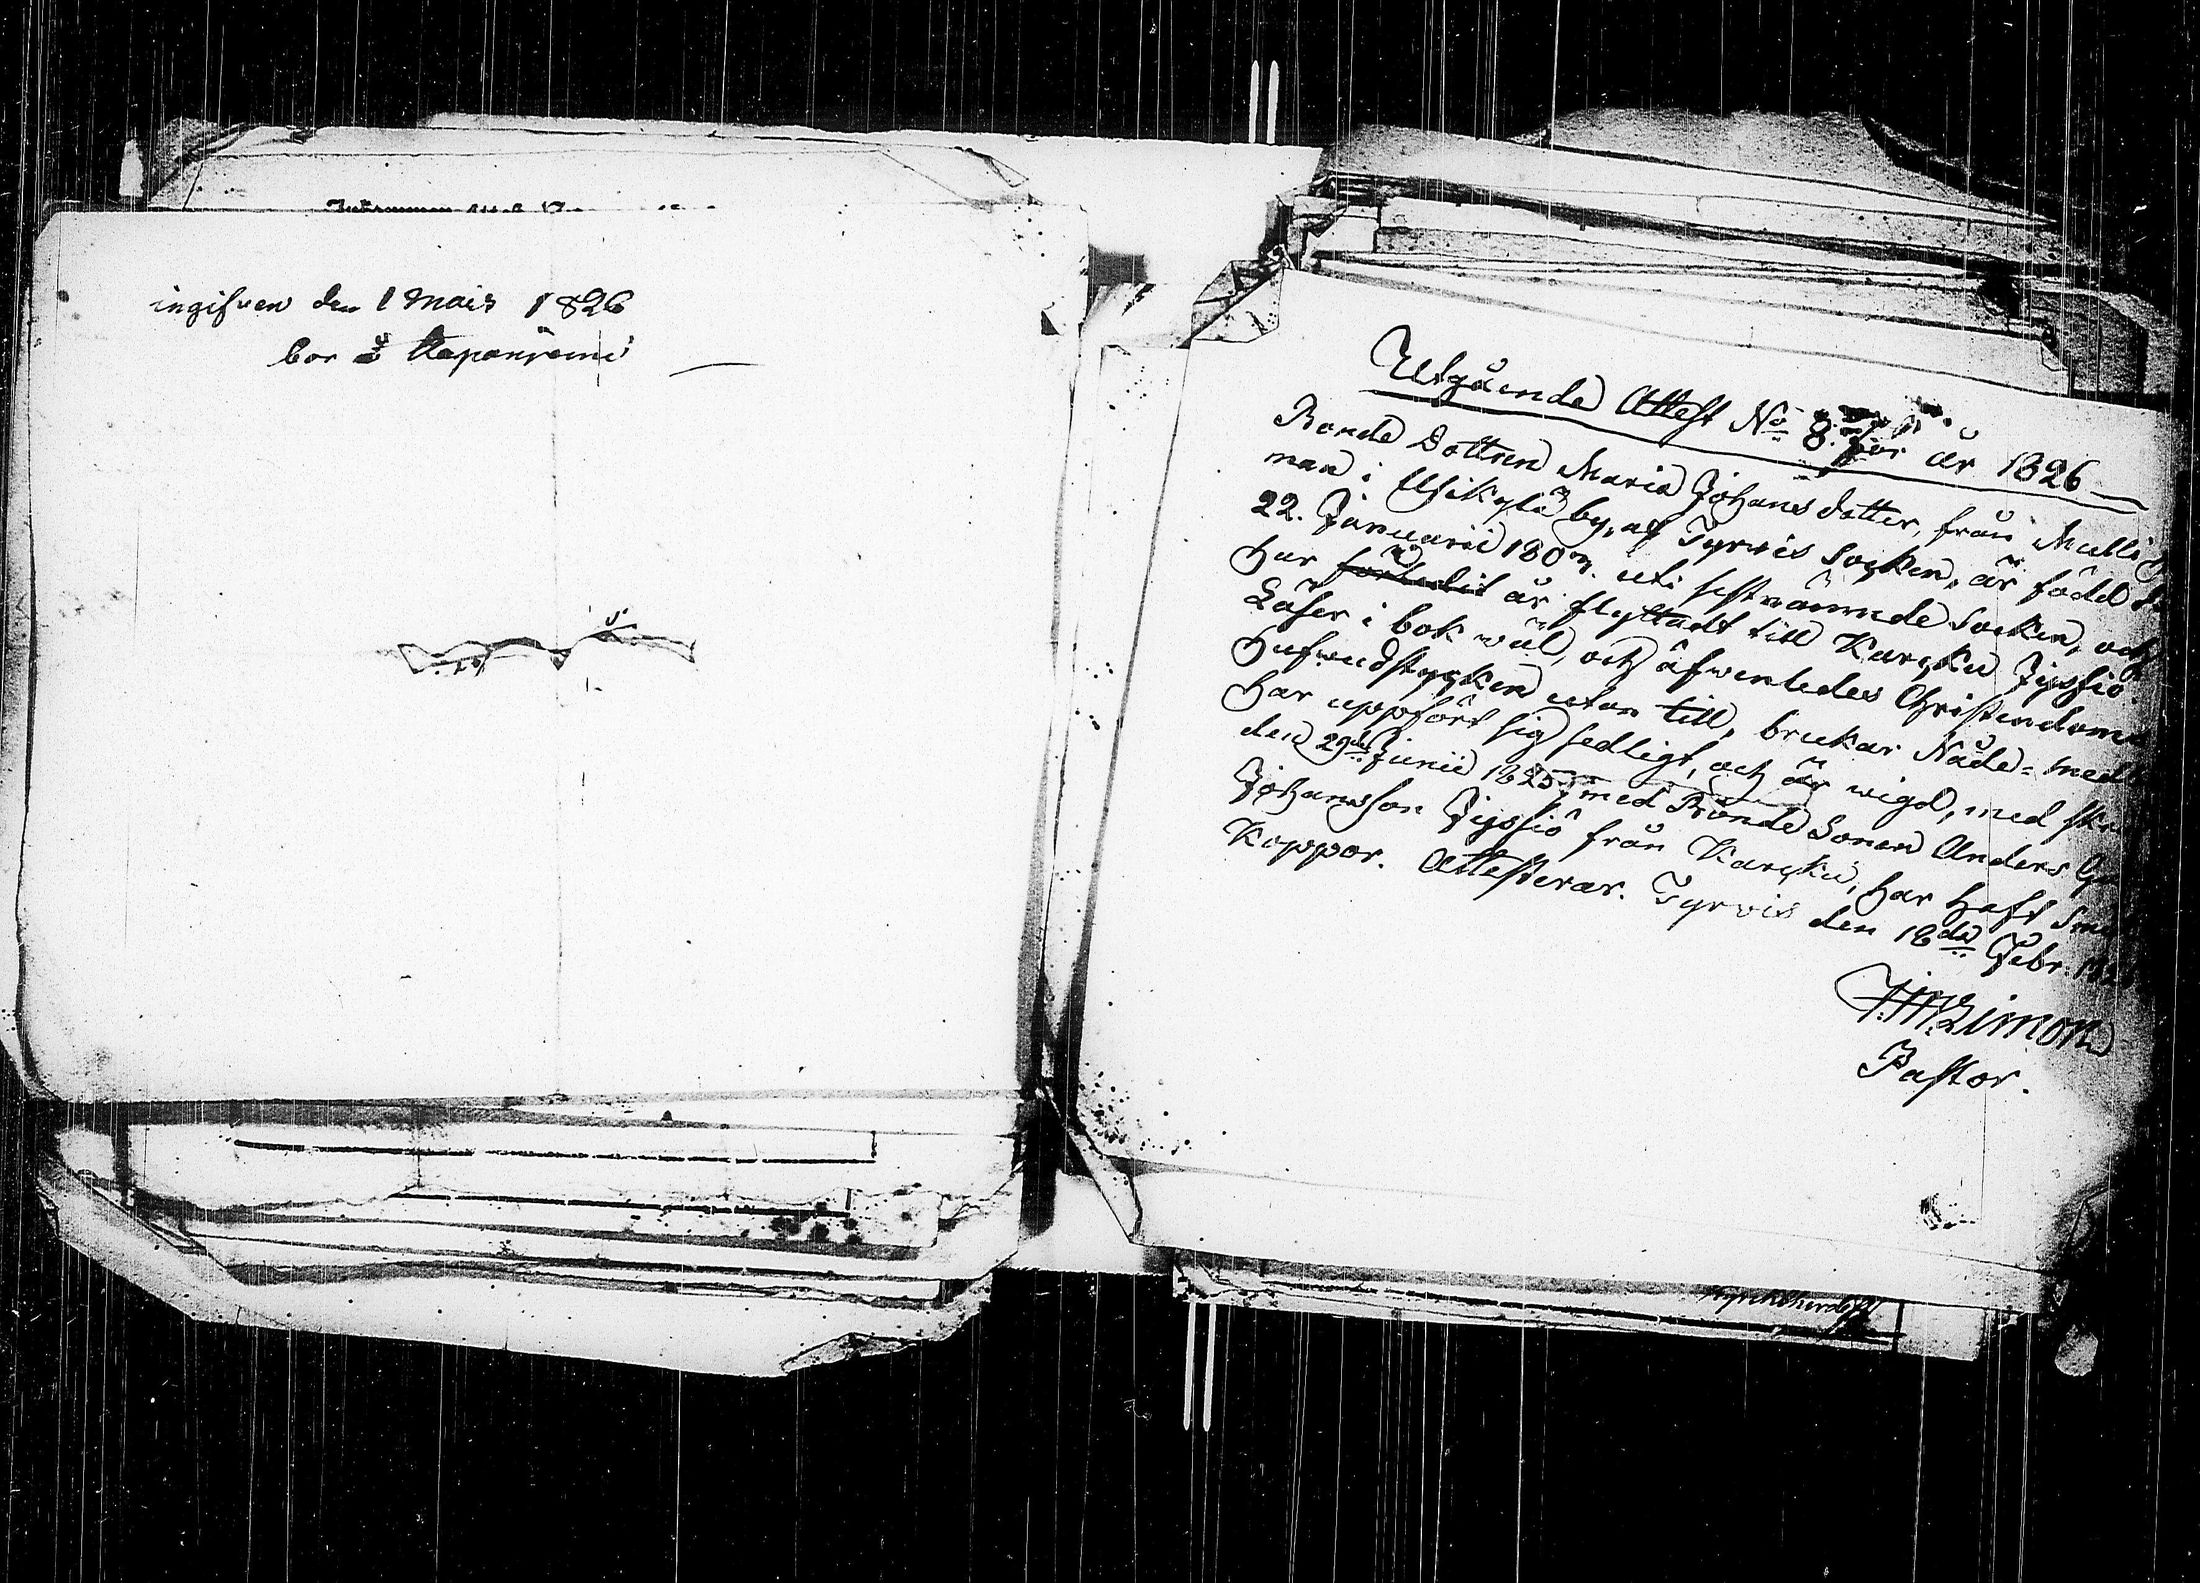 ingifven den 1 Mars 1826
bor å Kapanjemi
Utgående Attest No 8. för år 1826
Bonde Dottren Maria Johans dotter, från Mulli
man i Usikylä by, af Tyrvis Socken, är född
22. Januarii 180 uti sistnämnde Socken, och
har fortledit är flyttadt till Karcku Jyssiö.
Läser i bok wäl, och äfwenledes Christendoms
Hufwudstycken utan till, brukar Nåde-med
har uppfört sig sedligt, och är wigd, med
den 29de Junii 1825, med Bonde Sonen Anders
Johansson Jyssiö från Karcku, har haft
Koppor. Attesterar. Tyrvis den 16de Febr.
Pastor.